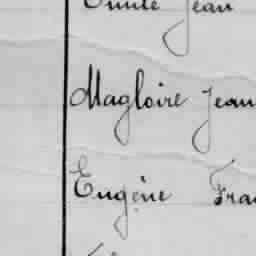 Emile Jean
Magloire Jean
Eugène Fra